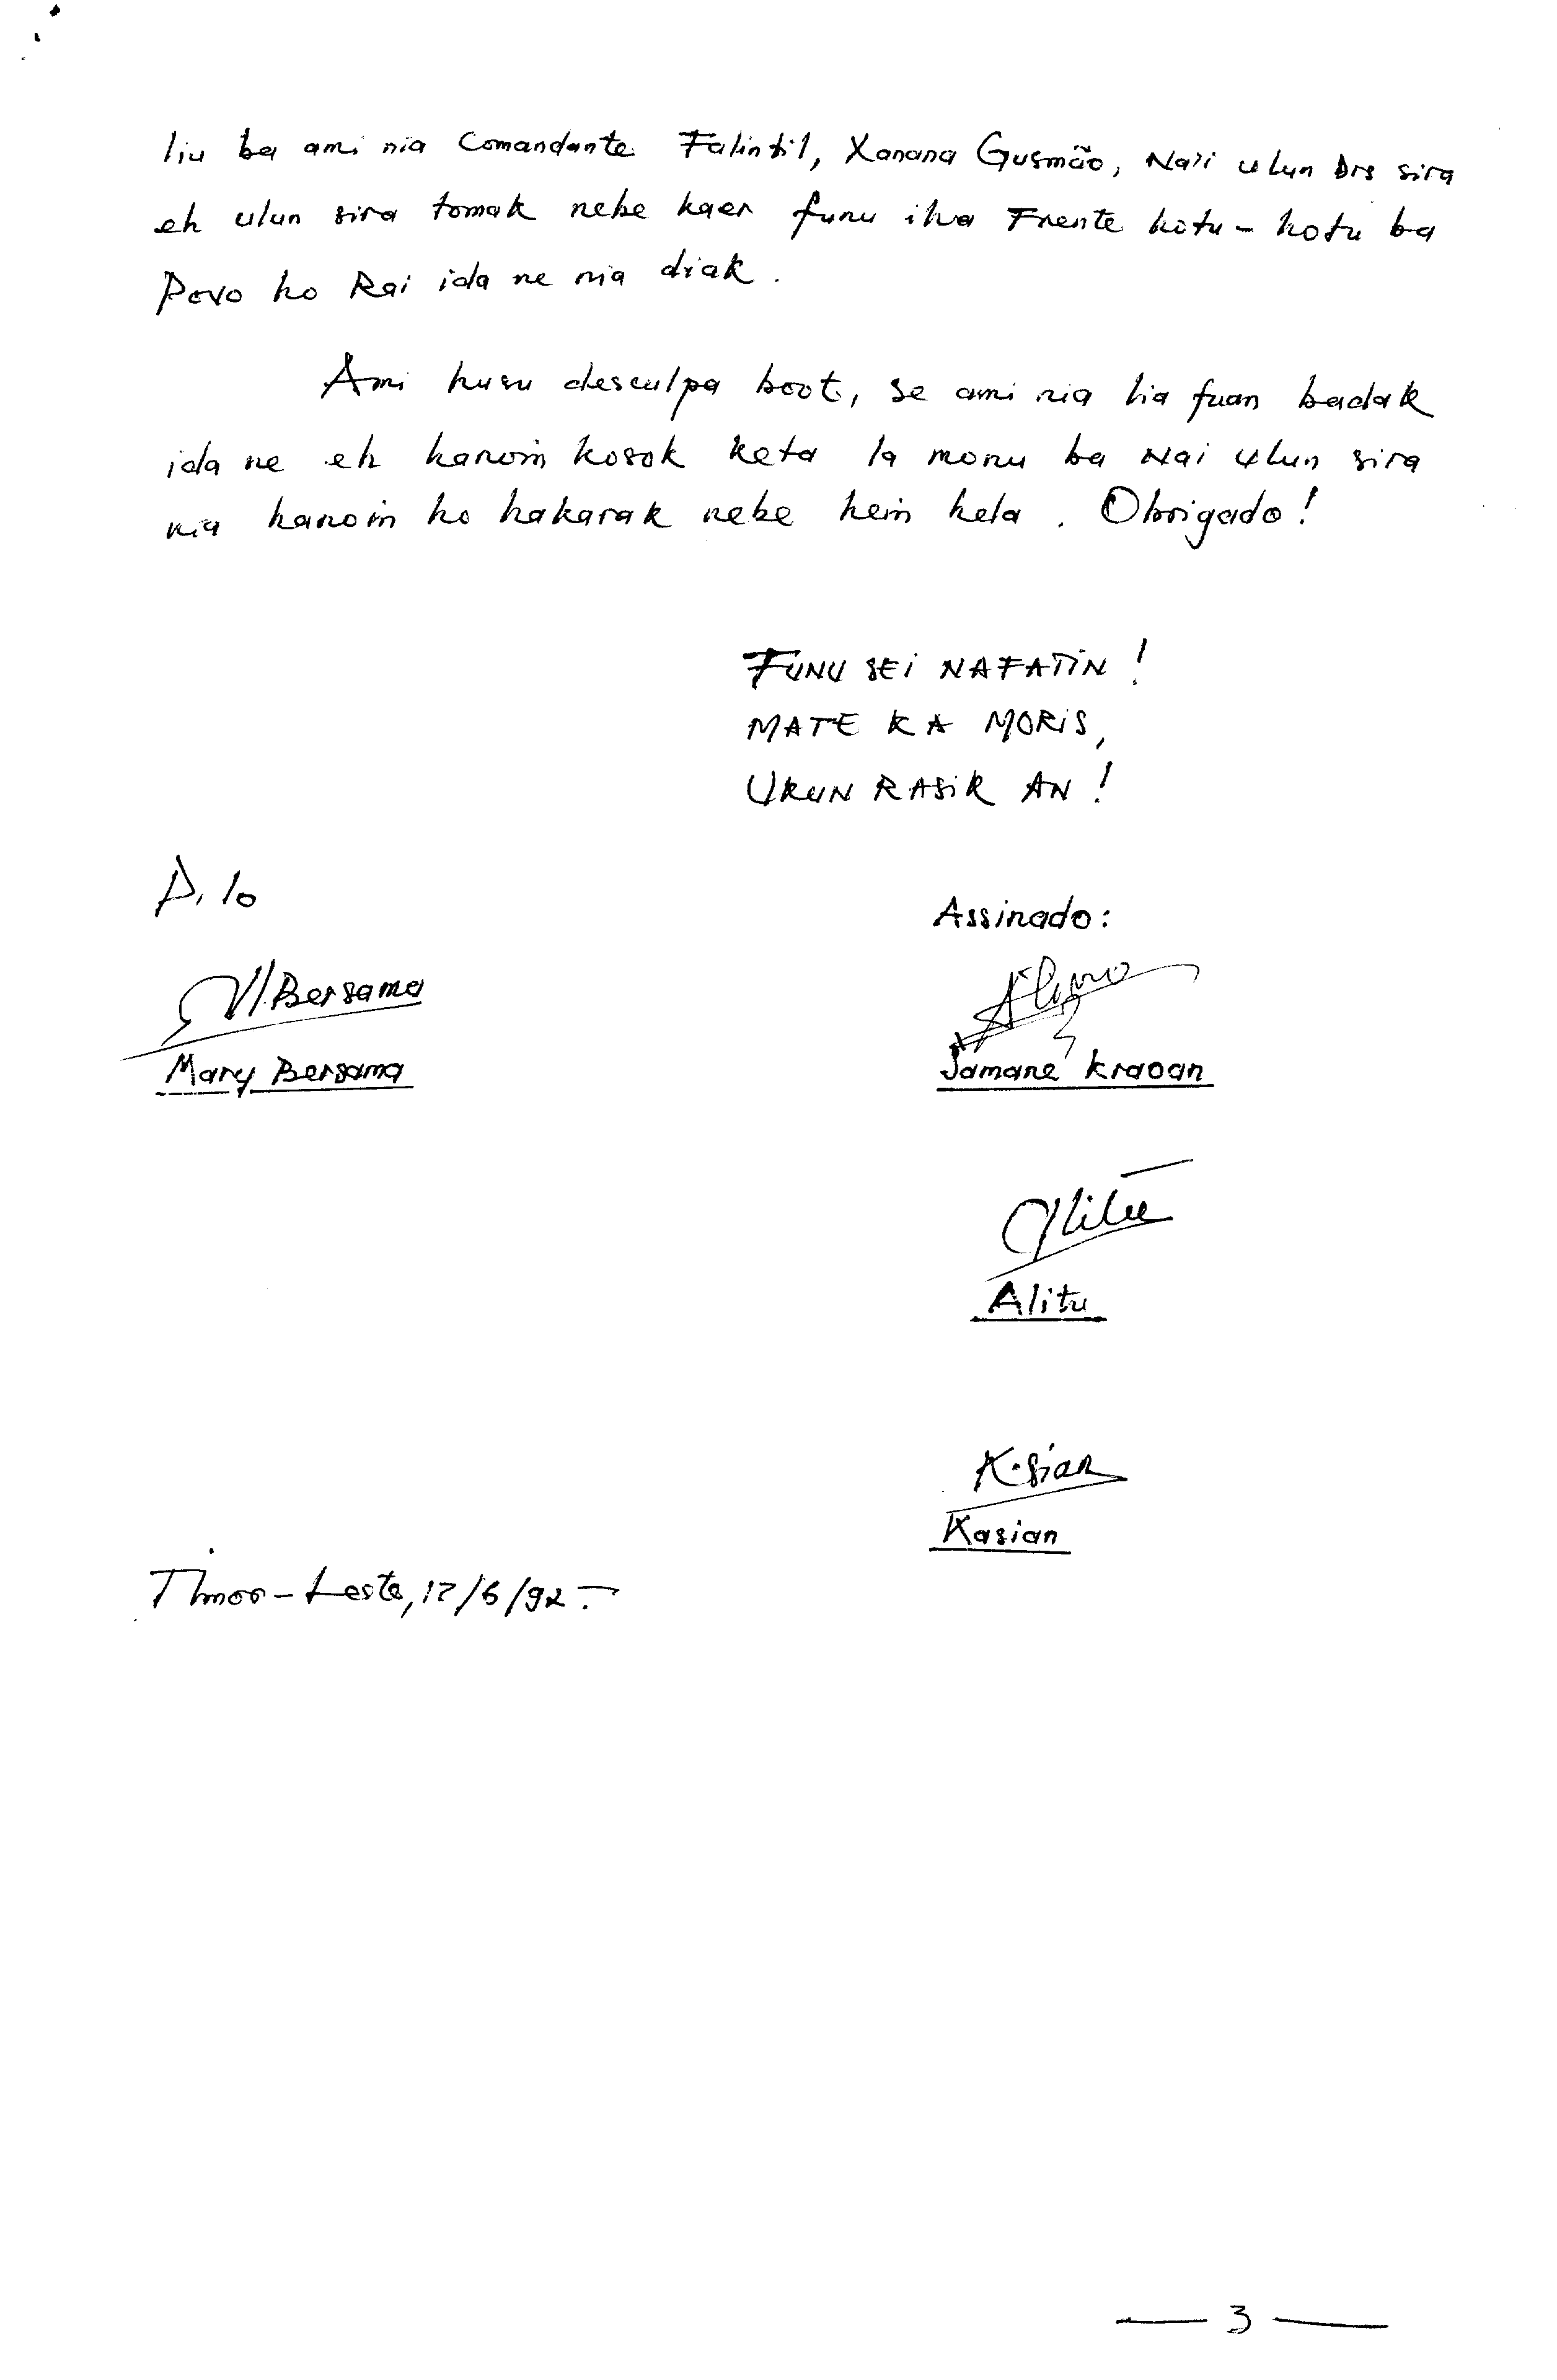 liu ba ami nia Comandante Falintil, Xanana Gusmão, Na'i ulun Drs sira
eh ulun sira tomak nebe kaer funu iha Frente hotu-hotu ba
Povo ho Rai ida ne nia diak.
Ami husu desculpa boot, se ami nia lia fuan badak
ida ne eh hanoin kosok keta la monu ba Nai ulun sira
nia hanoin ho hakarak nebe hein hela. Obrigado!
FUNU SEI NAFATIN!
MATE KA MORIS,
UKUN RASIK AN!
P. lo
Assinado:
Bersama
Mary Bersama
Jamane Kraoan
Alitu
Alitu
K.sian
Kasian
Timor-Leste, 17/6/92.-
— 3 —